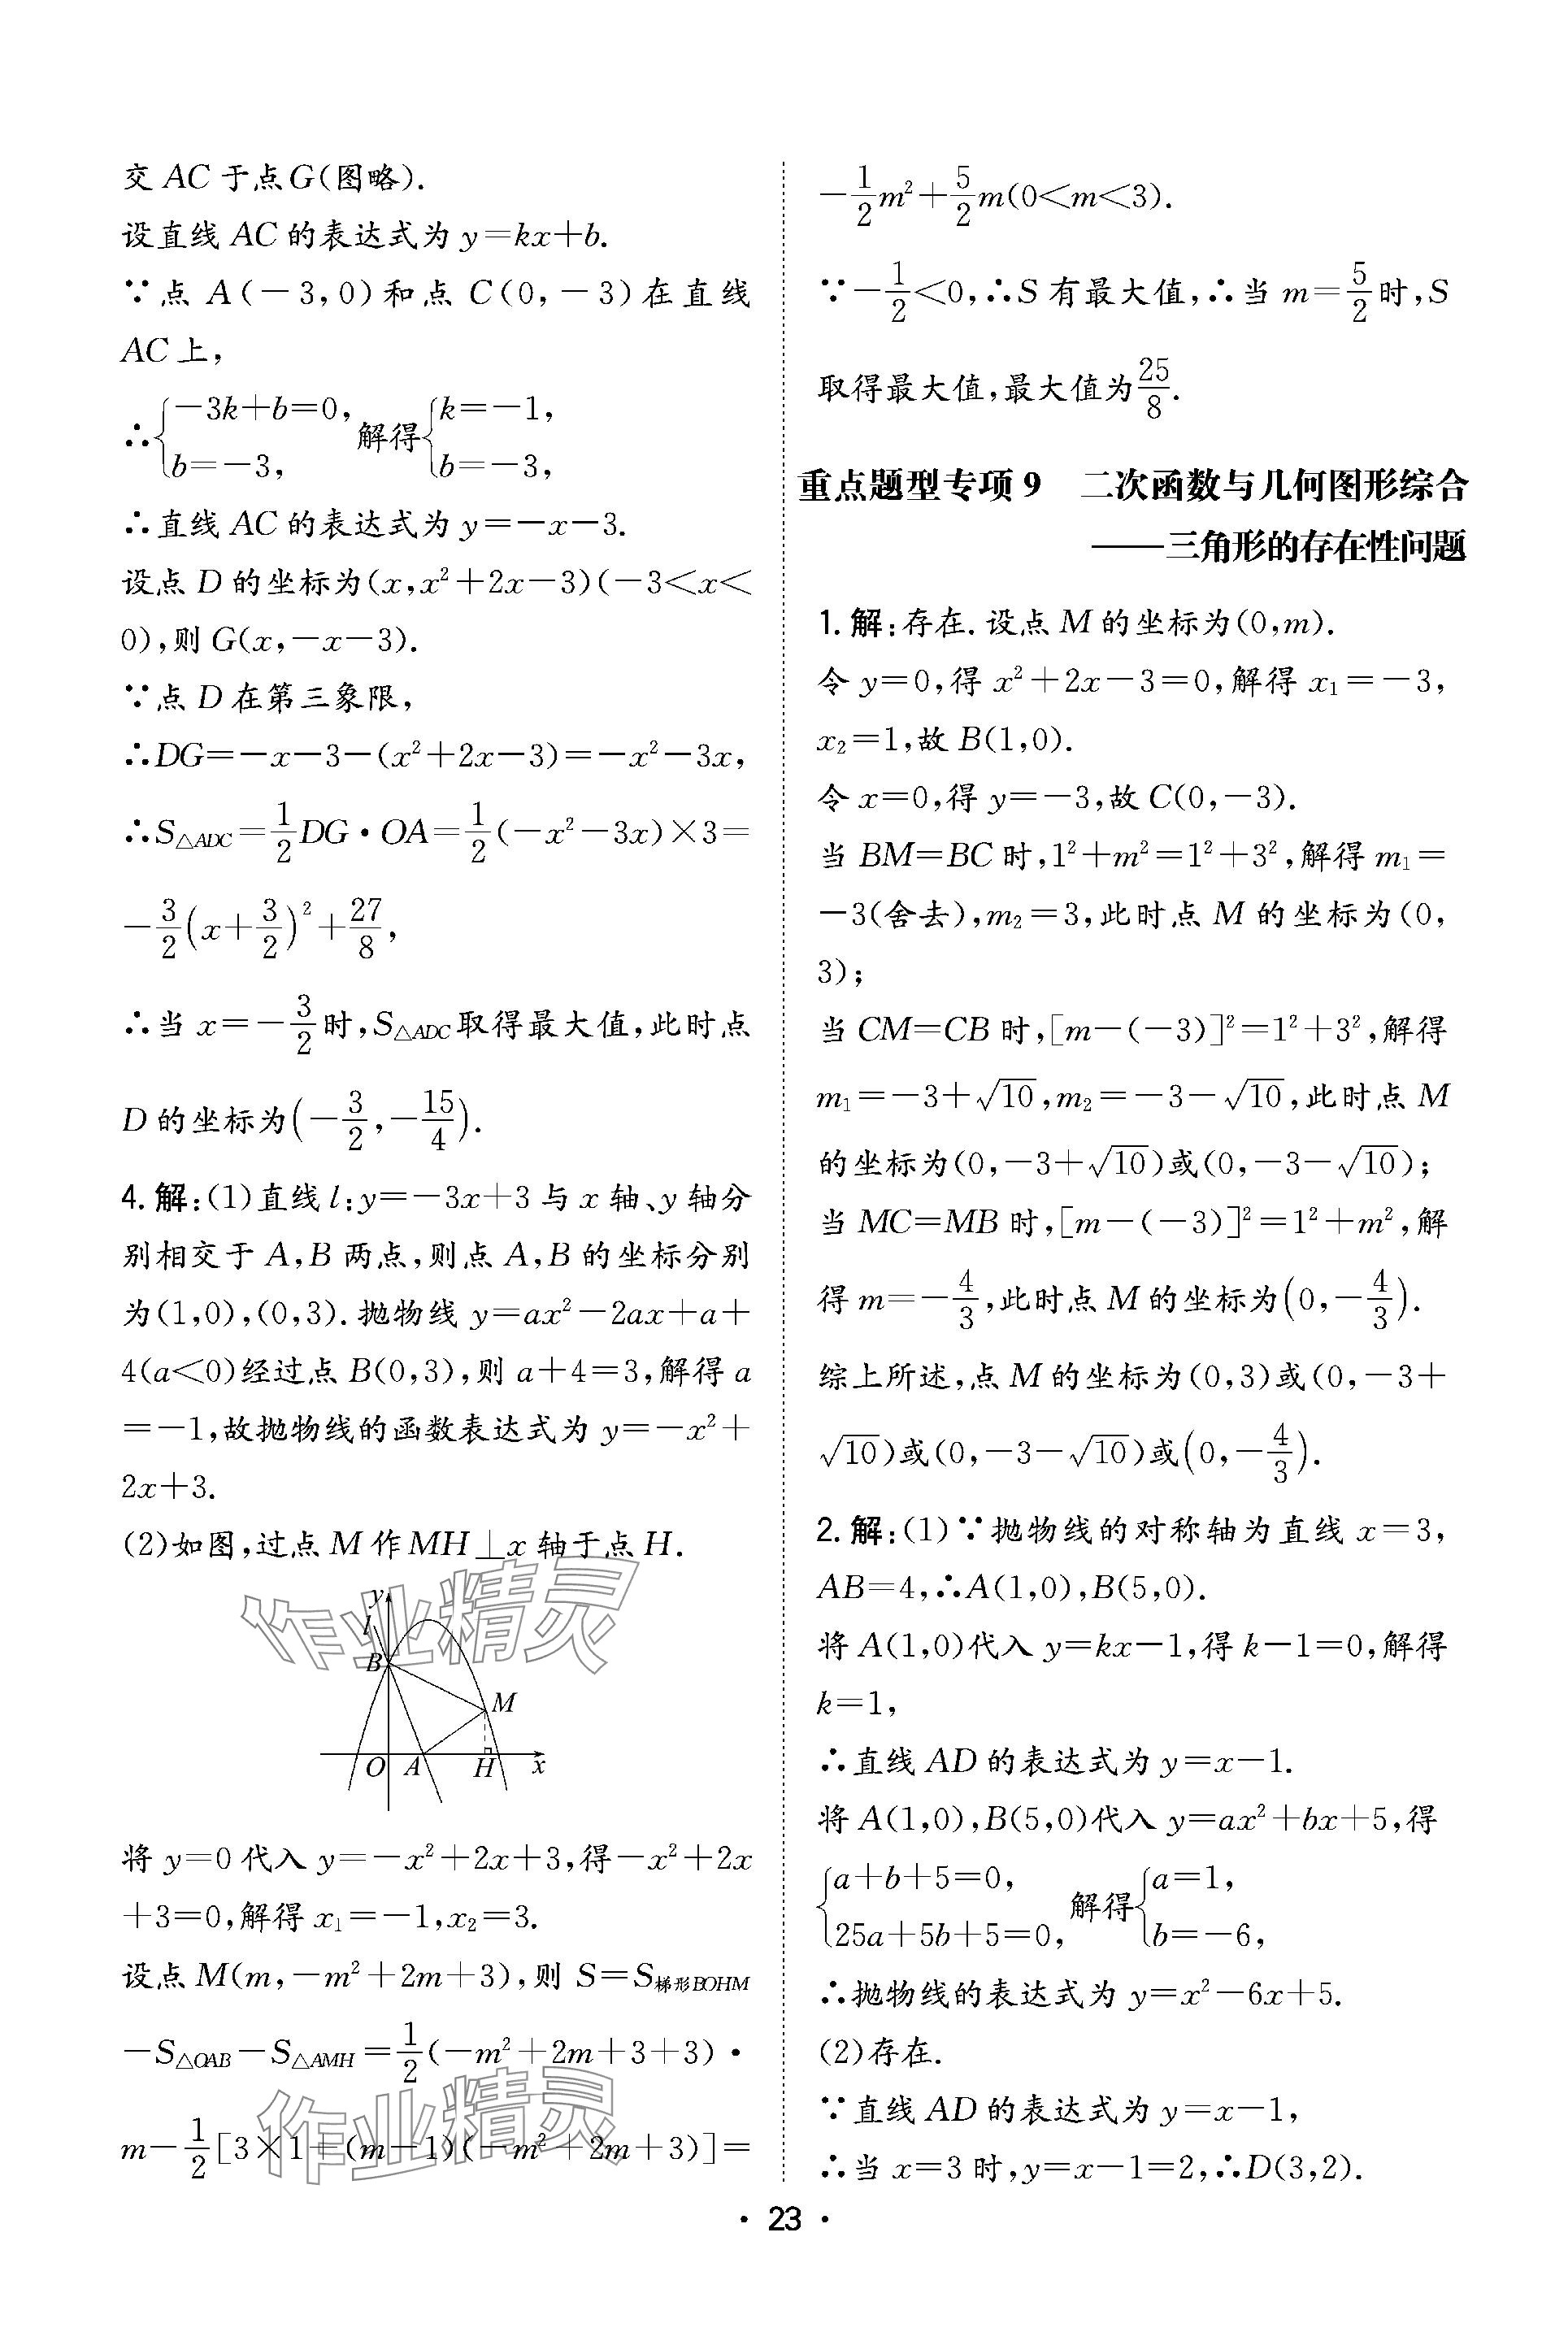 交 AC 于点G(图略).
设直线 AC 的表达式为 y=kx+b.
∵点 A(-3,0)和点 C(0,-3)在直线
AC 上,
∴{-3k+b=0, b=-3, 解得{k=-1, b=-3,
∴直线 AC 的表达式为 y=-x-3.
设点 D 的坐标为(x,x²+2x-3)(-3<x<
0),则 G(x,-x-3).
∵点 D 在第三象限,
∴DG=-x-3-(x²+2x-3)=-x²-3x,
∴S△ADC=1/2DG·OA=1/2(-x²-3x)×3=
-3/2(x+3/2)²+27/8,
∴当 x=-3/2时,S△ADC取得最大值,此时点
D 的坐标为(-3/2,-15/4).
4. 解:(1)直线 l:y=-3x+3 与 x 轴、y 轴分
别相交于 A,B 两点,则点 A,B 的坐标分别
为(1,0),(0,3). 抛物线 y=ax²-2ax+a+
4(a<0)经过点 B(0,3),则 a+4=3,解得 a
=-1,故抛物线的函数表达式为 y=-x²+
2x+3.
(2)如图,过点 M 作 MH⊥x 轴于点 H.
作业精灵
y
l
B
M
O A H x
将 y=0 代入 y=-x²+2x+3,得-x²+2x
+3=0,解得 x₁=-1,x₂=3.
设点 M(m,-m²+2m+3),则 S=S梯形BOHM
-S△OAB-S△AMH=1/2(-m²+2m+3+3)·
作业精灵
m-1/2[3×1+(m-1)(-m²+2m+3)]=
-1/2m²+5/2m(0<m<3).
∵-1/2<0,∴S 有最大值,∴当 m=5/2时,S
取得最大值,最大值为25/8.
重点题型专项 9 二次函数与几何图形综合
——三角形的存在性问题
1. 解:存在. 设点 M 的坐标为(0,m).
令 y=0,得 x²+2x-3=0,解得 x₁=-3,
x₂=1,故 B(1,0).
令 x=0,得 y=-3,故 C(0,-3).
当 BM=BC 时,1²+m²=1²+3²,解得 m₁=
-3(舍去),m₂=3,此时点 M 的坐标为(0,
3);
当 CM=CB 时,[m-(-3)]²=1²+3²,解得
m₁=-3+√10,m₂=-3-√10,此时点 M
的坐标为(0,-3+√10)或(0,-3-√10);
当 MC=MB 时,[m-(-3)]²=1²+m²,解
得 m=-4/3,此时点 M 的坐标为(0,-4/3).
综上所述,点 M 的坐标为(0,3)或(0,-3+
√10)或(0,-3-√10)或(0,-4/3).
2. 解:(1)∵抛物线的对称轴为直线 x=3,
AB=4,∴A(1,0),B(5,0).
将 A(1,0)代入 y=kx-1,得 k-1=0,解得
k=1,
∴直线 AD 的表达式为 y=x-1.
将 A(1,0),B(5,0)代入 y=ax²+bx+5,得
{a+b+5=0, 25a+5b+5=0, 解得{a=1, b=-6,
∴抛物线的表达式为 y=x²-6x+5.
(2)存在.
∵直线 AD 的表达式为 y=x-1,
∴当 x=3 时,y=x-1=2,∴D(3,2).
· 23 ·